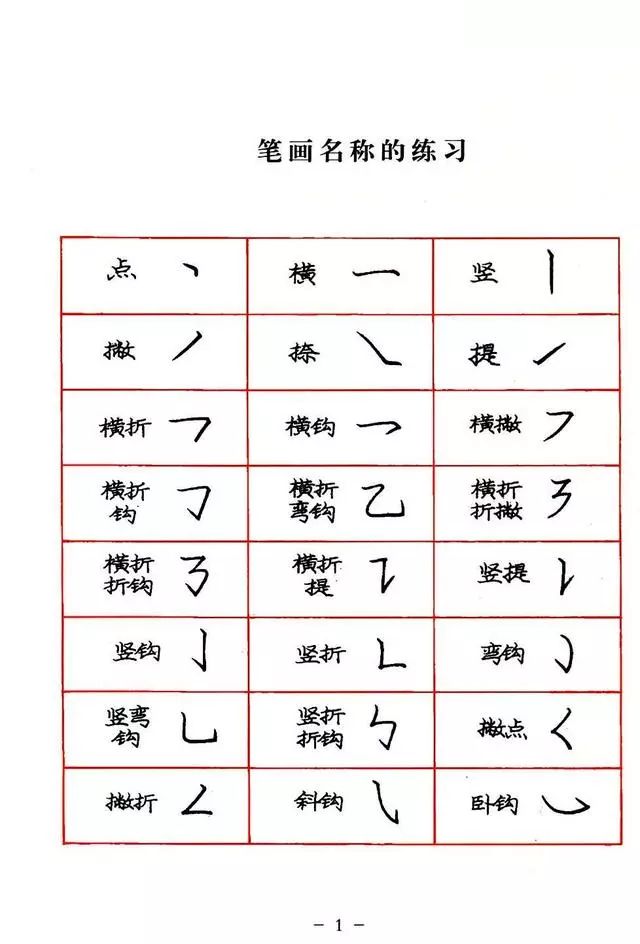 笔画名称的练习
点 丶
横 一
竖 丨
撇 丿
捺 ㇏
提 ㇀
横折 ㇕
横钩 乛
横撇 ㇇
横折
钩 𠃌
横折
弯钩 乙
横折
折撇 ㇋
横折
折钩 ㇡
横折
提 ㇊
竖提 ㇙
竖钩 亅
竖折 ㇗
弯钩 ㇁
竖弯
钩 乚
竖折
折钩 ㇉
撇点 ㇛
撇折 ㇜
斜钩 ㇂
卧钩 ㇃
- 1 -